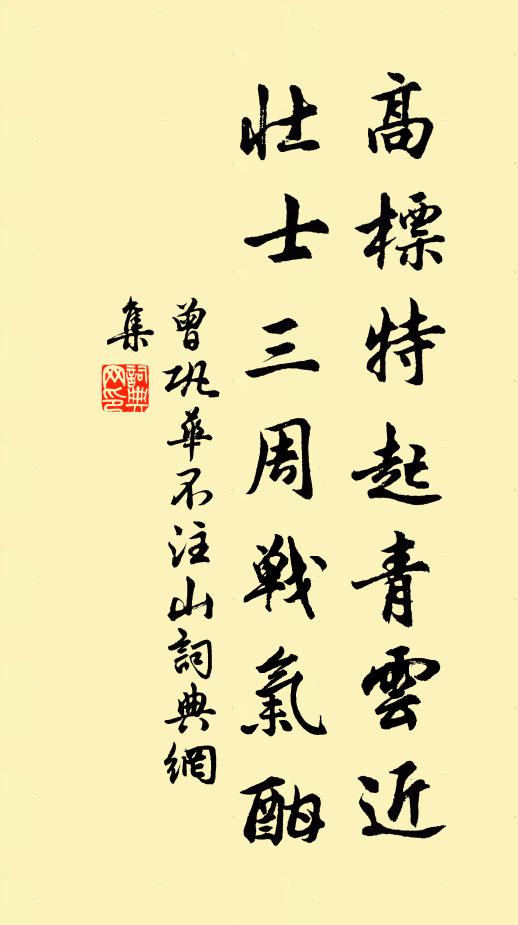 高標特起青雲近
壯士三周戰氣酣
曾巩華不注山詞典網
集
詞典網印